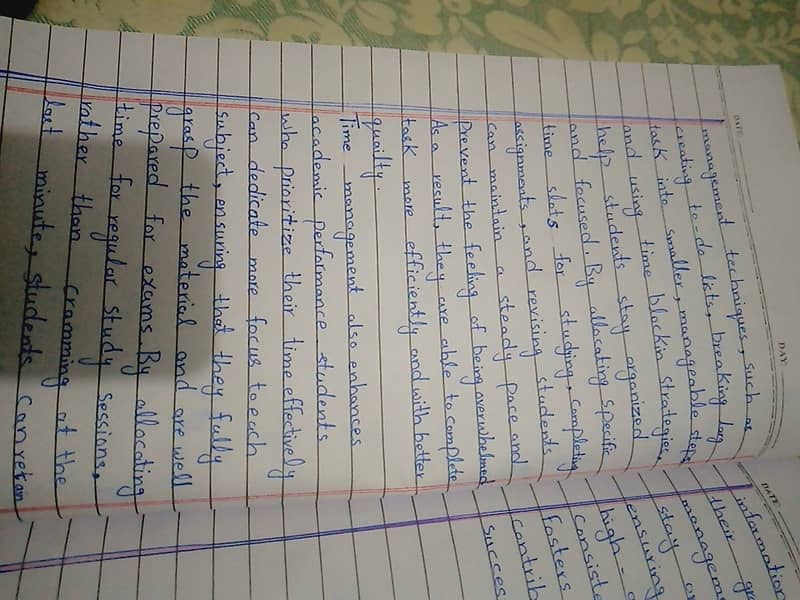 DATE:
DAY:
management techniques, such as
creating to-do lists, breaking larg
task into smaller, manageable steps
and using time blockin strategies,
help students stay organized
and focused. By allocating specific
time slots for studying, completing
assignments, and revising students
can maintain a steady pace and
prevent the feeling of being overwhelmed
As a result, they are able to complete
task more efficiently and with better
quailty.
Time management also enhances
academic performance. students
who prioritize their time effectively
can dedicate more focus to each
subject, ensuring that they fully
grasp the material and are well
prepared for exams. By allocating
time for regular study sessions,
rather than cramming at the
last minute, students can retain
DATE:
information
their
managem
stay
ensuring
high-
consiste
fosters
contrib
succes